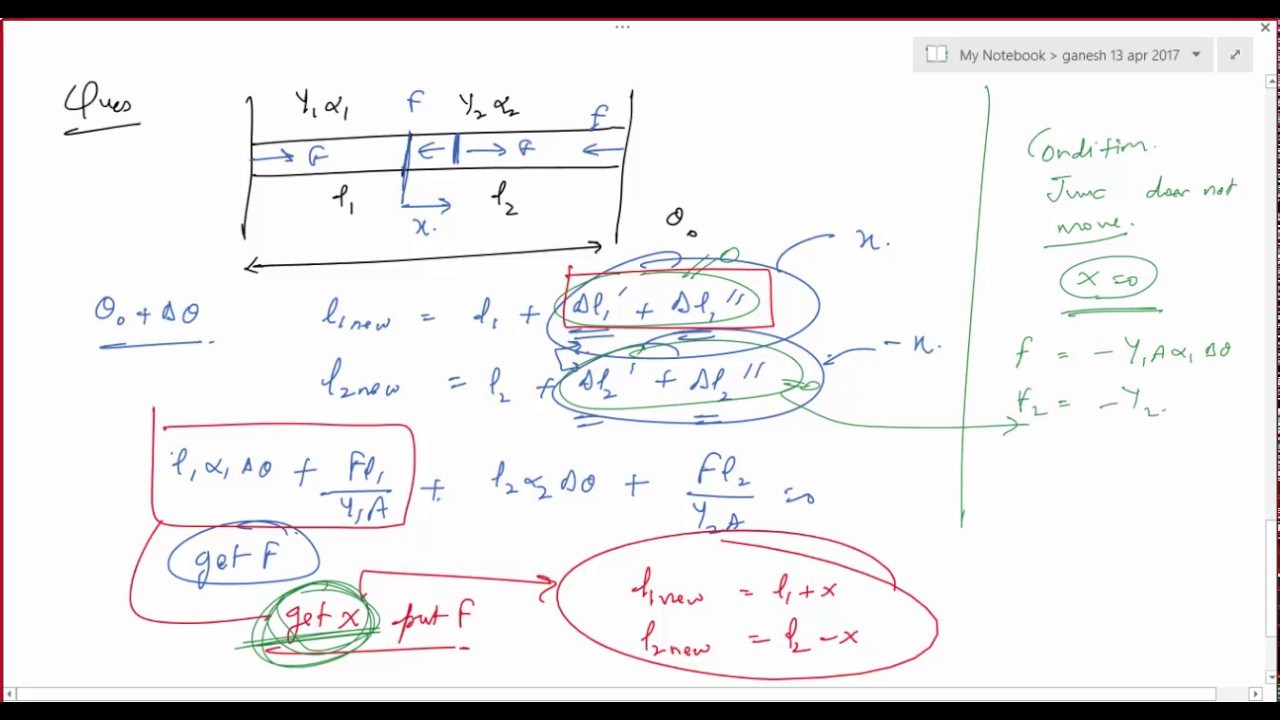 ...
My Notebook > ganesh 13 apr 2017
Ques
Y₁ α₁ F Y₂ α₂ F
F F
l₁ l₂
x.
θ₀
x.
θ₀ + Δθ
l₁ new = l₁ + Δl₁' + Δl₁'' = 0
l₂ new = l₂ + Δl₂' + Δl₂'' = 0
- x.
l₁ α₁ Δθ + Fl₁/Y₁A + l₂ α₂ Δθ + Fl₂/Y₂A = 0
get F
get x put F
l₁ new = l₁ + x
l₂ new = l₂ - x
Condition.
Junc does not
move.
x = 0
F = - Y₁ A α₁ Δθ
F₂ = - Y₂.